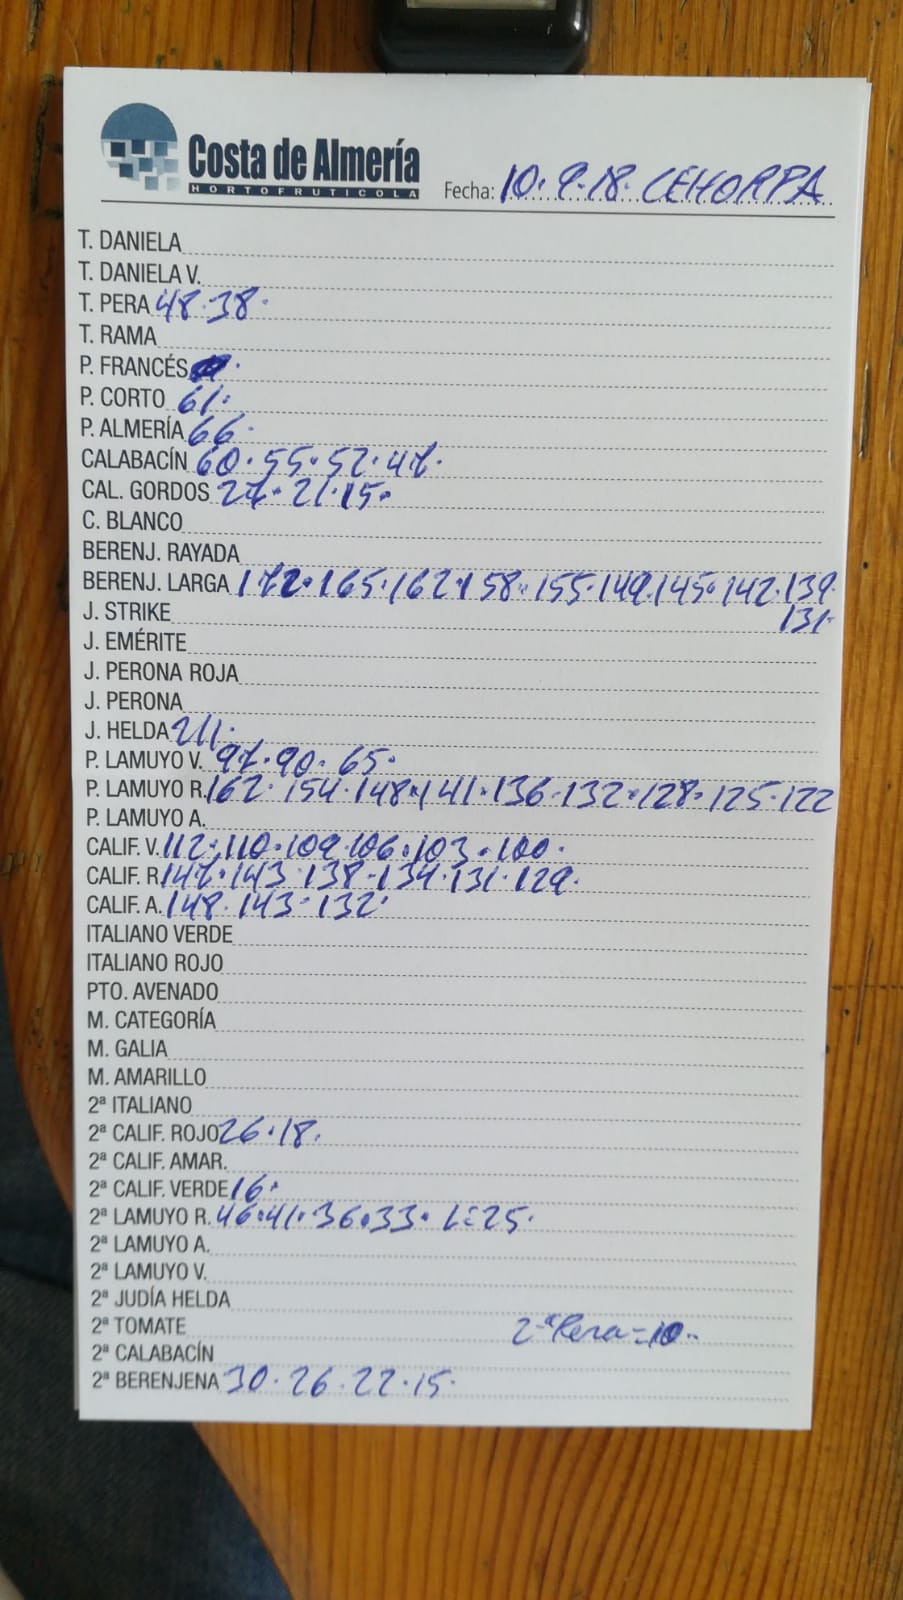 Costa de Almería
HORTOFRUTICOLA
Fecha: 10.9.18. CEHORPA
T. DANIELA
T. DANIELA V.
T. PERA 48.38.
T. RAMA
P. FRANCÉS
P. CORTO 61.
P. ALMERÍA 66.
CALABACÍN 60.55.52.47.
CAL. GORDOS 27.21.15.
C. BLANCO
BERENJ. RAYADA
BERENJ. LARGA 172.165.162.158.155.149.145.142.139.
131.
J. STRIKE
J. EMÉRITE
J. PERONA ROJA
J. PERONA
J. HELDA 211.
P. LAMUYO V. 97.90.65.
P. LAMUYO R. 162.154.148.141.136.132.128.125.122
P. LAMUYO A.
CALIF. V. 112.110.109.106.103.100.
CALIF. R 147.143.138.134.131.129.
CALIF. A. 148.143.132.
ITALIANO VERDE
ITALIANO ROJO
PTO. AVENADO
M. CATEGORÍA
M. GALIA
M. AMARILLO
2ª ITALIANO
2ª CALIF. ROJO 26.18.
2ª CALIF. AMAR.
2ª CALIF. VERDE 16.
2ª LAMUYO R. 46.41.36.33. L=25.
2ª LAMUYO A.
2ª LAMUYO V.
2ª JUDÍA HELDA
2ª TOMATE 2ª Pera=10.
2ª CALABACÍN
2ª BERENJENA 30.26.22.15.